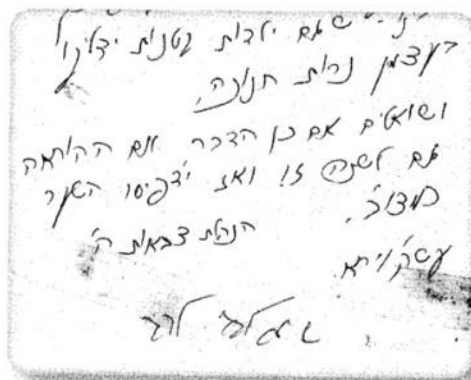 שגם ילדות קטנות ידליקו
בעצמן נרות חנוכה,
ושואלים אם כן הדבר אם ההוראה
גם לשנה זו ואז ידפיסו השער
כמצו"ב.
הנהלת צבאות ה'